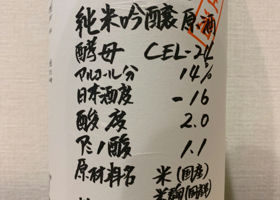 純米吟醸原酒
酵母 CEL-24
アルコール分 14%
日本酒度 -16
酸度 2.0
アミノ酸 1.1
原材料名 米(国産)
米麹(国産米)